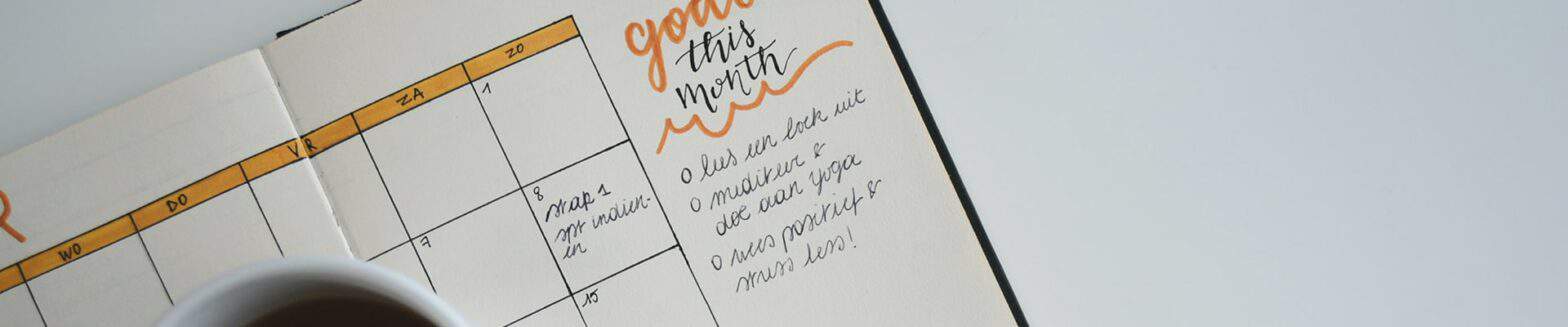 goals
this
month
WO DO VR ZA ZO
1
7
8
stap 1
spt indien-
en
15
o lees een boek uit
o mediteer &
doe aan yoga
o wees positief &
stress less!